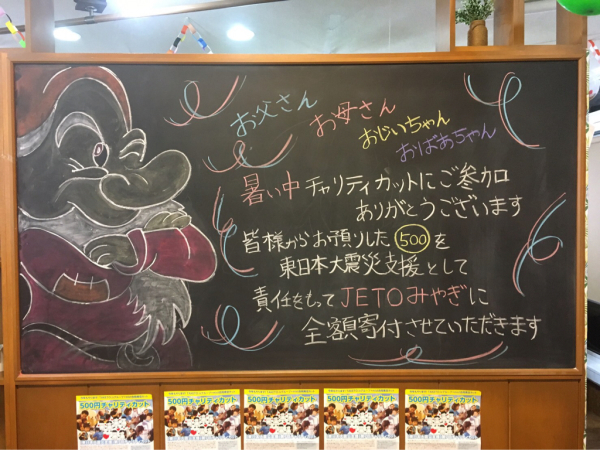 お父さん
お母さん
おじいちゃん
おばあちゃん
暑い中 チャリティカットにご参加
ありがとうございます
皆様からお預りした 500 を
東日本大震災支援として
責任をもって JETOみやぎに
全額寄付させていただきます
500円チャリティカット
500円チャリティカット
500円チャリティカット
500円チャリティカット
500円チャリティカット